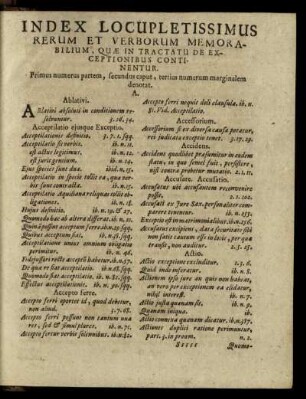 INDEX LOCUPLETISSIMUS
RERUM ET VERBORUM MEMORA-
BILIUM, QUÆ IN TRACTATU DE EX-
CEPTIONIBUS CONTI-
NENTUR.
Primus numerus partem, secundus caput, tertius numerum marginalem
denotat.
A.
Ablativi.
Ablativi absoluti in conditionem re-
solvuntur. 3. 16. 34.
Acceptilatio ejusque Exceptio.
Acceptilationis definitio. 3. 7. 1. sqq.
Est modus in verbis. ib. n. 9.
est actus legitimus. ib. n. 10.
est juris gentium. ib. n. 14.
Ejus species sunt duæ. ib. n. 15.
Acceptilatio in specie tollit ea, quæ ver-
bis sunt contracta. ib. n. 17.
Acceptilatio Aquiliana reliquas tollit ob-
ligationes. ib. n. 18.
Hujus definitio. ib. n. 19. & 27.
Quomodo hæc ab altera differat. ib. n. 21.
Quinam possint acceptum ferre. ib. n. 29. sqq.
Quibus acceptum fiat. ib. n. 35. sqq.
Acceptilatione unius omnium obligatio
perimitur. ib. n. 46.
Fidejussori recte accepto habetur. ib. n. 48.
De qua re fiat acceptilatio. ib. n. 50. sqq.
Quomodo fiat acceptilatio. ib. n. 63. sqq.
Effectus acceptilationis. ib. n. 70. sqq.
Accepto ferre.
Accepto ferri oportet id, quod debetur,
non aliud. 3. 7. 68.
Accepto ferri possunt non tantum una
res, sed & simul plures. ib. n. 71.
Accepto fertur verbis solennibus. ib. n. 72.
Accepto ferri nequit doli clausula. ib. n.
81. Vid. Acceptilatio.
Accessorium.
Accessorium si ex diversa causa petatur,
res judicata exceptio tenet. 3. 17. 29.
Accidens.
Accidens quodlibet præsumitur in eodem
statu, in quo semel fuit, perstitisse,
nisi contra probetur mutatio. 2. 1. 11.
Accusatus. Accusatio.
Accusatus uti accusantem reconvenire
possit. 2. 1. 101.
Accusati ex Jure Sax. personaliter com-
parere tenentur. ib. n. 103.
Excepto est in levioribus delictis. ib. n. 106.
Accusatus excipiens, dura securitatis sibi
non satis cautum esse in locis, per quæ
transit, non auditur. 2. 5. 25.
Actio.
Actio exceptione excluditur. 2. 1. 3.
Quid inde inferatur. ib. n. 5.
Actionem ipso jure an quis non habeat,
an vero per exceptionem ea elidatur,
nihil interest. ib. n. 7.
Actio justa quænam sit. ib. n. 9.
Quænam iniqua. ib.
Actio connexa quænam dicatur. 2. 1. 267.
Actiones duplici ratione perimuntur.
part. 3. in prœm. n. 1.
Sssss
Quomo-